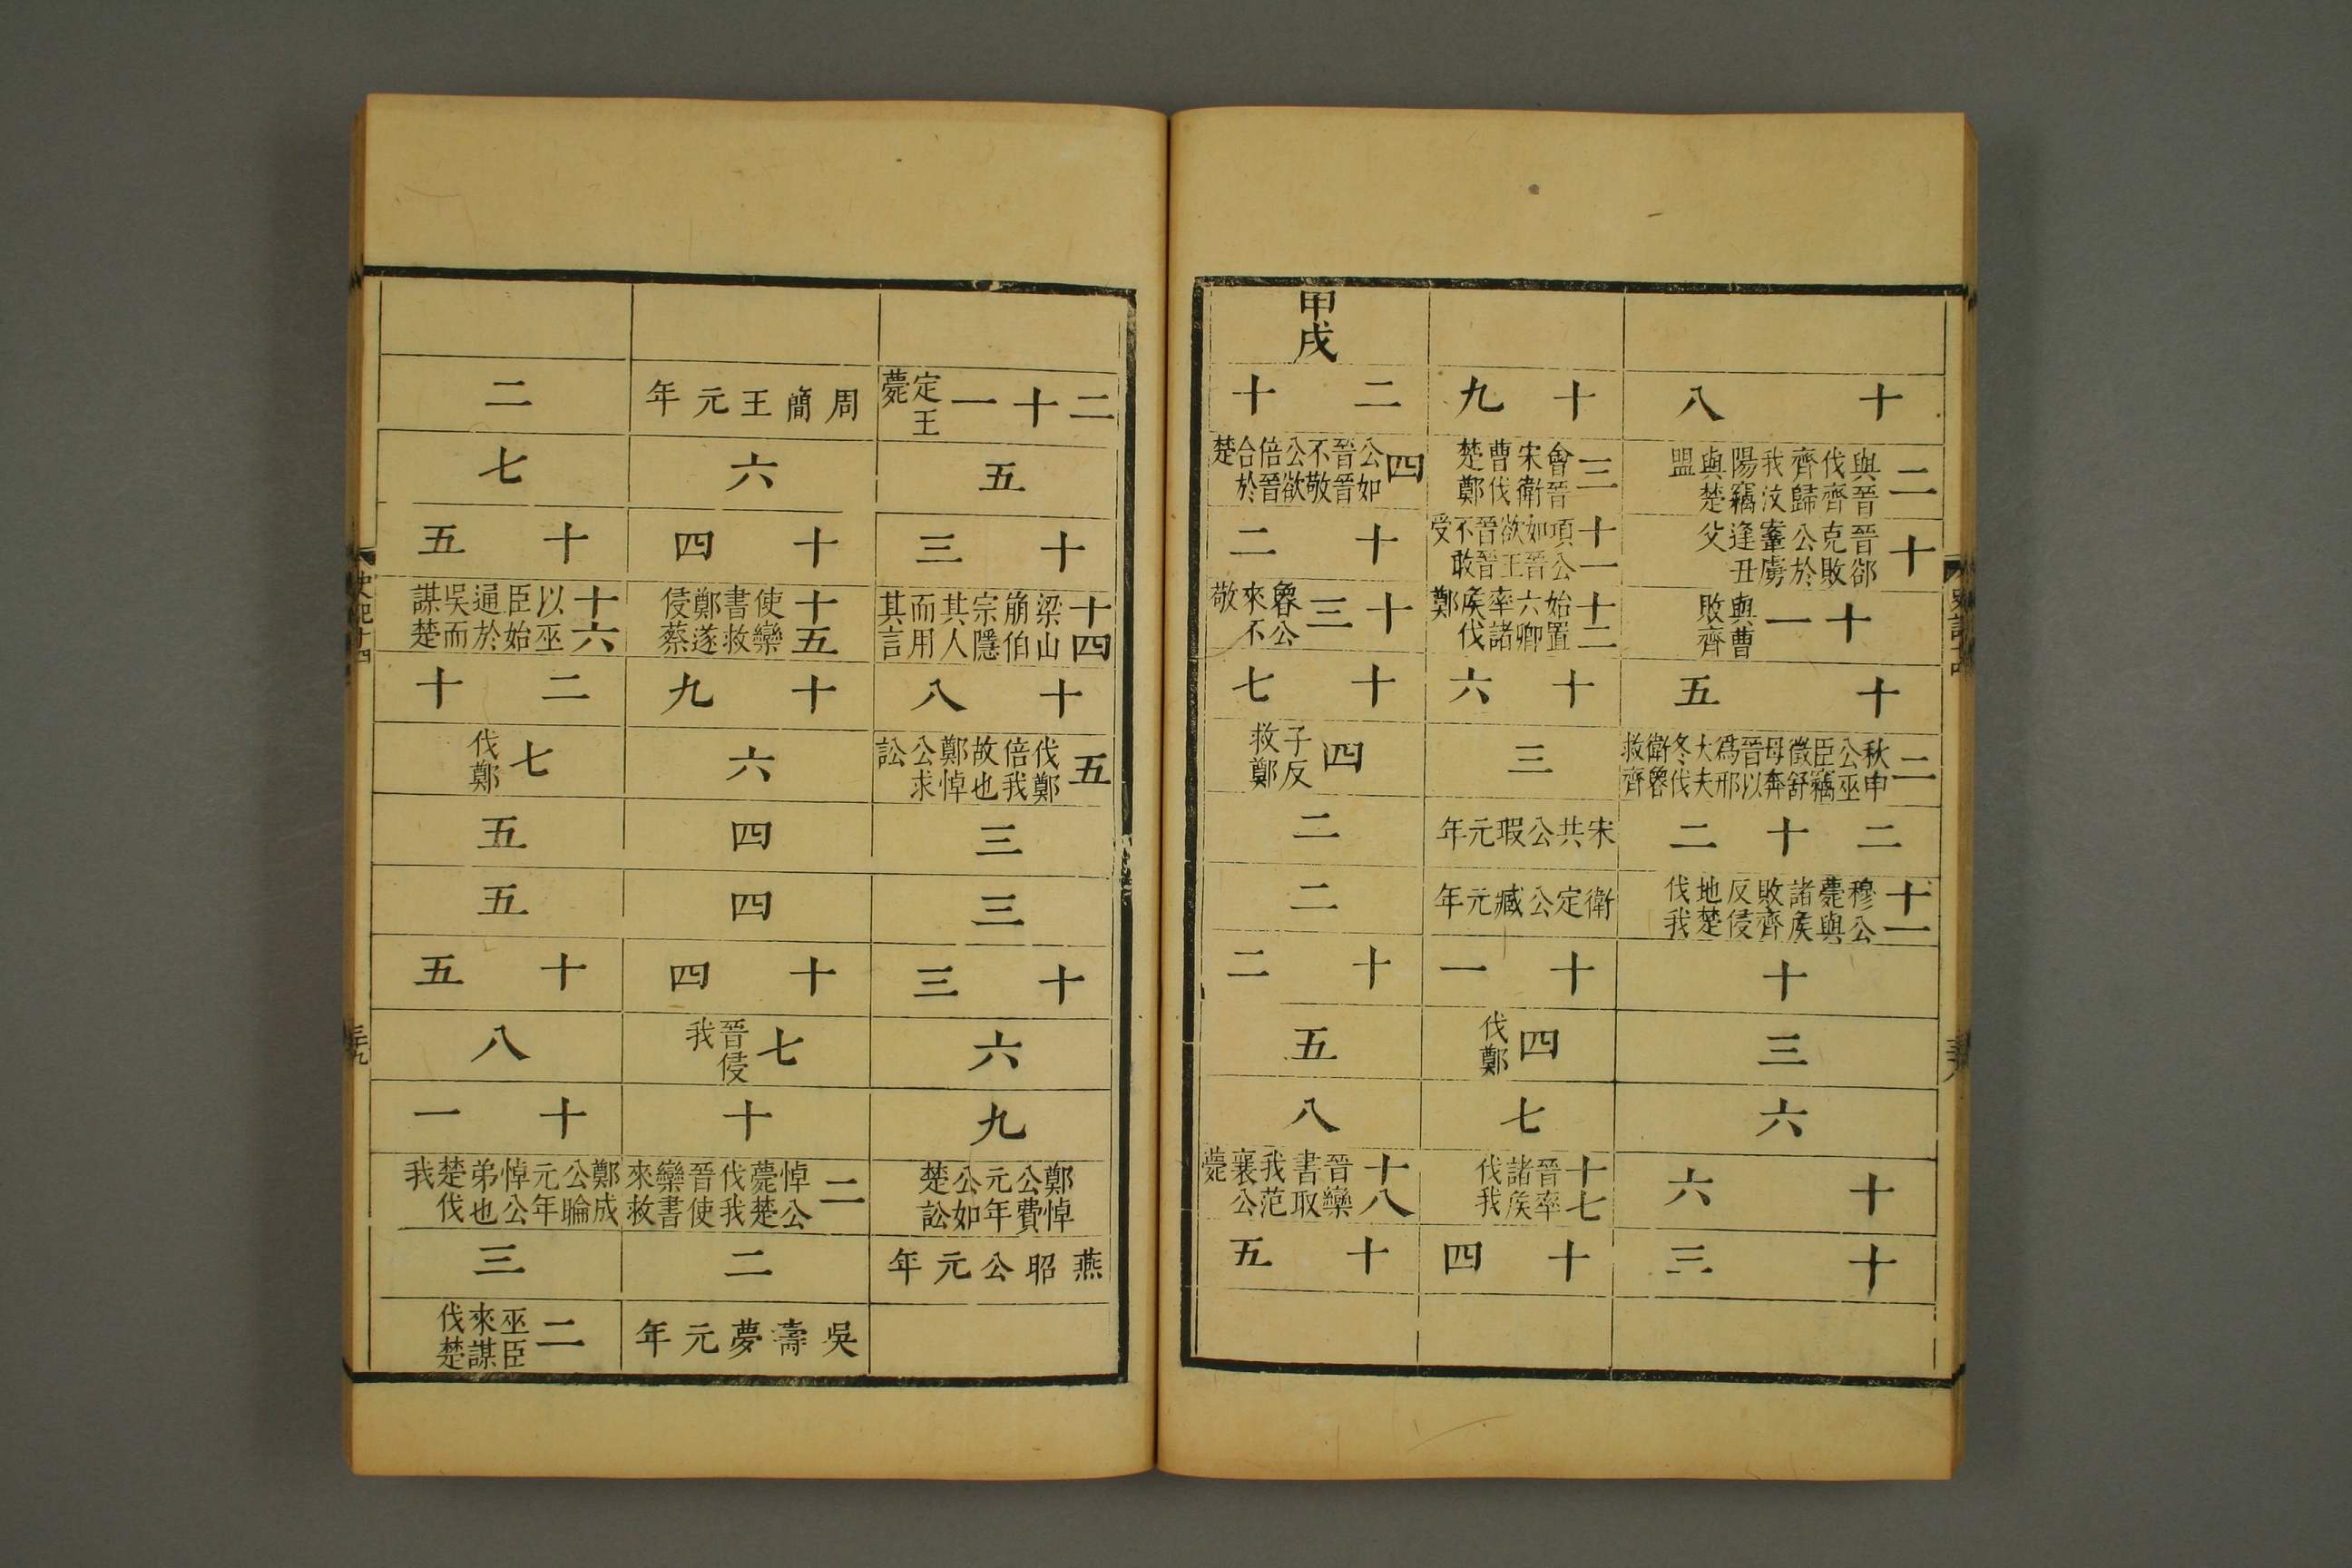 十八
二與晉伐齊齊歸我汶陽竊與楚盟
十晉郤克敗公於鞌虜逢丑父
十一與曹敗齊
十五
二秋申公巫臣竊徵舒母奔晉以爲邢大夫冬伐衛魯救齊
二十二
十一穆公薨與諸矦敗齊反侵地楚伐我
十
三
六
十六
十三
十九
三會晉宋衛曹伐楚鄭
十一項公如晉欲王晉晉不敢受
十二始置六卿率諸矦伐鄭
十六
三
宋共公瑕元年
衛定公臧元年
十一
四伐鄭
七
十七晉率諸矦伐我
十四
甲戌
二十
四公如晉晉不敬公欲倍晉合於楚
十二
十三魯公來不敬
十七
四子反救鄭
二
二
十二
五
八
十八晉欒書取我范襄公薨
十五
二十一定王薨
五
十三
十四梁山崩伯宗隱其人而用其言
十八
五伐鄭倍我故也鄭悼公求訟
三
三
十三
六
九
鄭悼公費元年公如楚訟
燕昭公元年
周簡王元年
六
十四
十五使欒書救鄭遂侵蔡
十九
六
四
四
十四
七晉侵我
十
二悼公薨楚伐我晉使欒書來救
二
吳壽夢元年
二
七
十五
十六以巫臣始通於吳而謀楚
二十
七伐鄭
五
五
十五
八
十一
鄭成公睔元年悼公弟也楚伐我
三
二巫臣來謀伐楚
史記十四
三十九